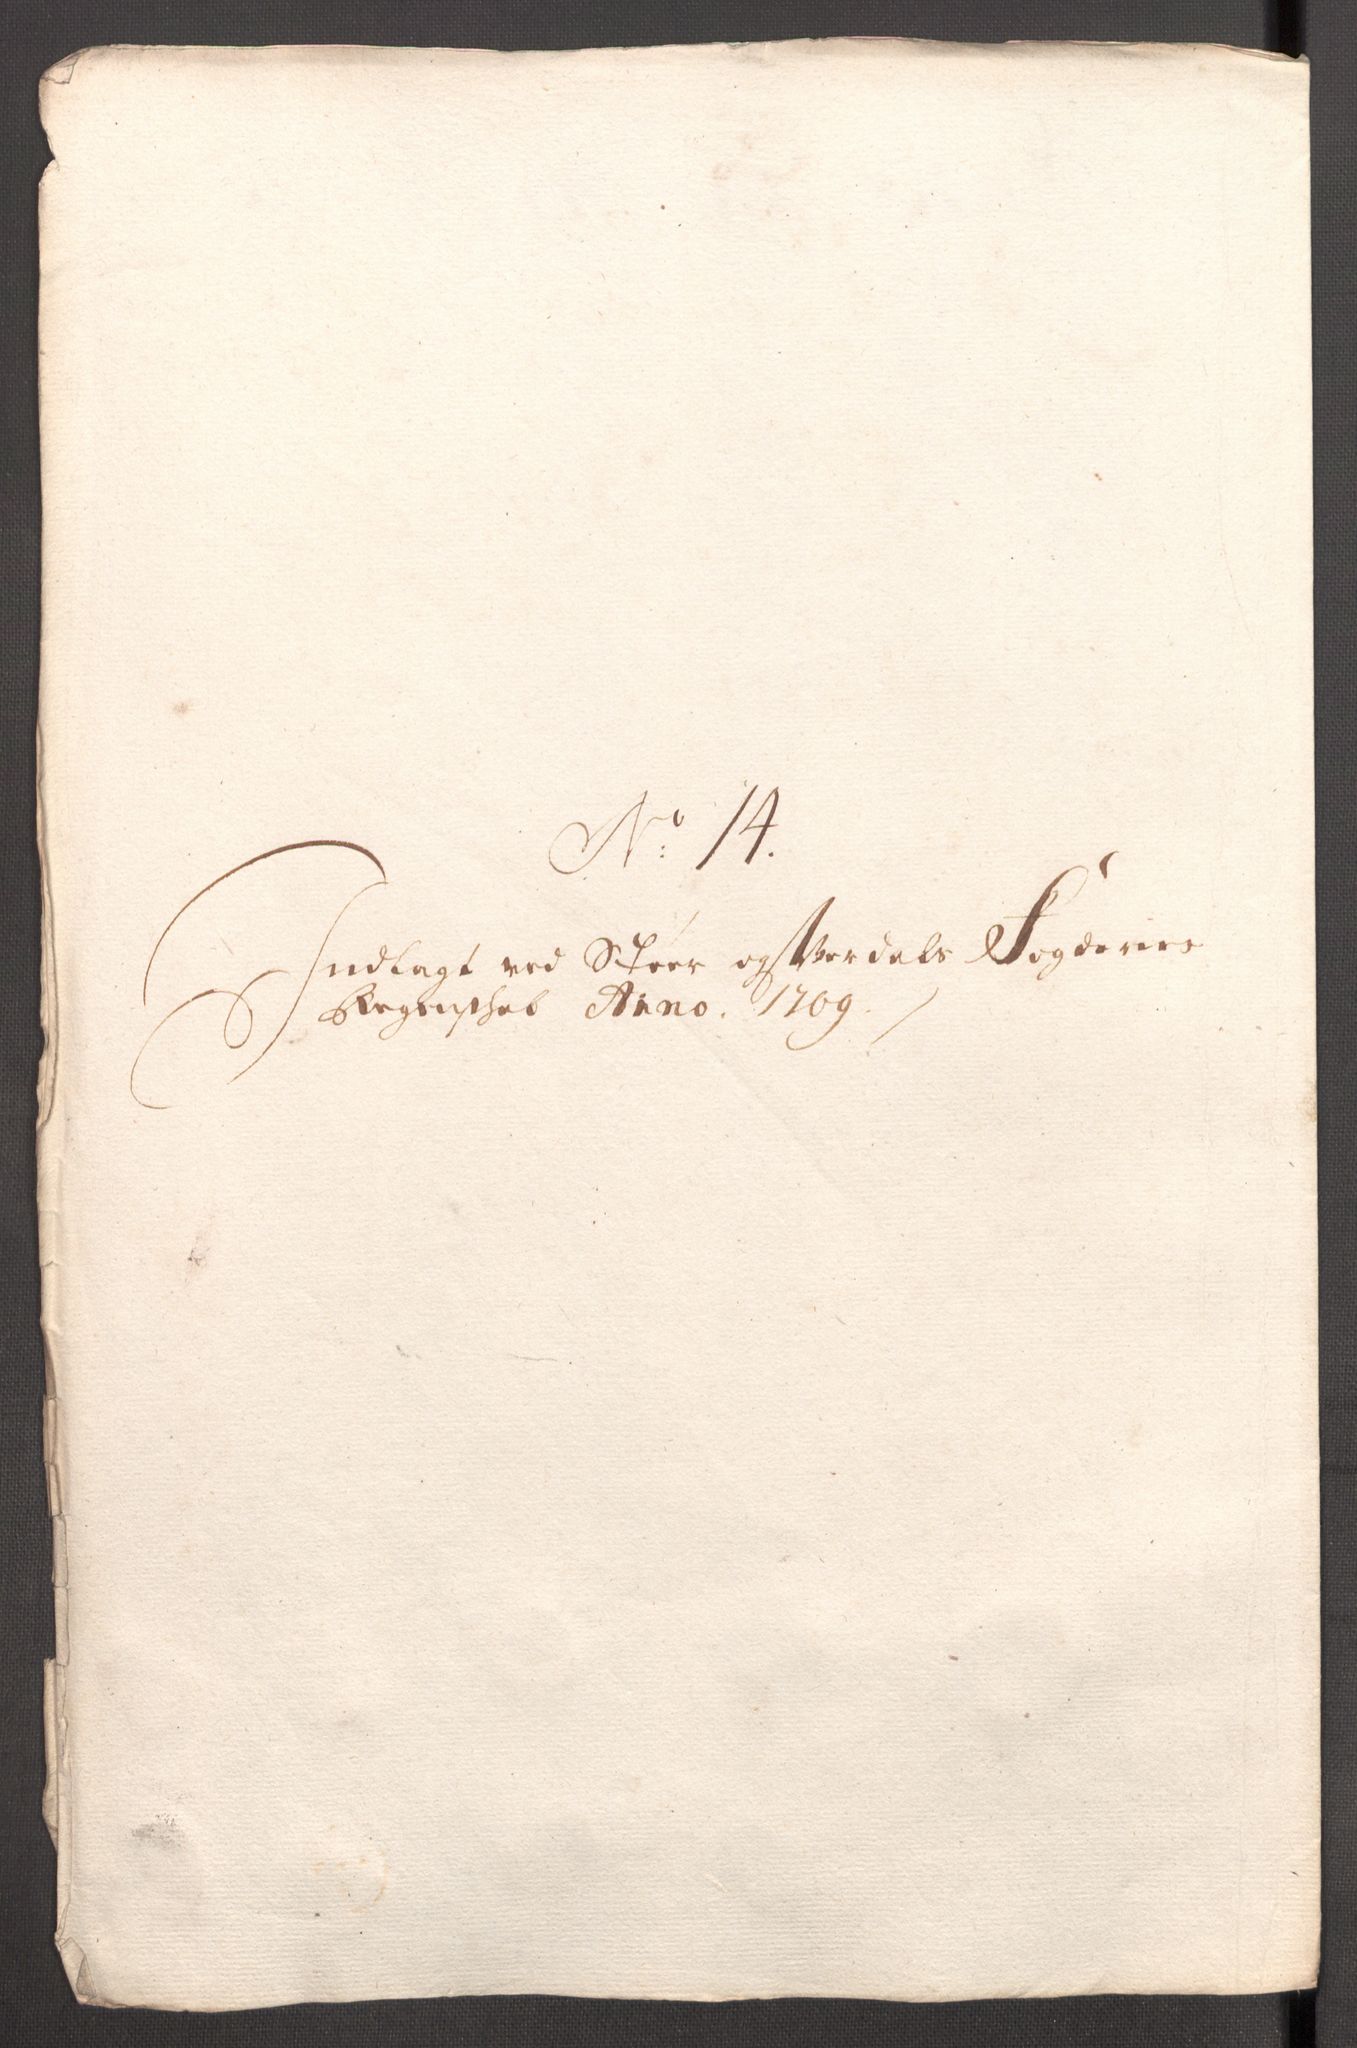 No: 14.
Indlagt ved Støer og Verdals Fogderies
Regenschab Anno. 1709.